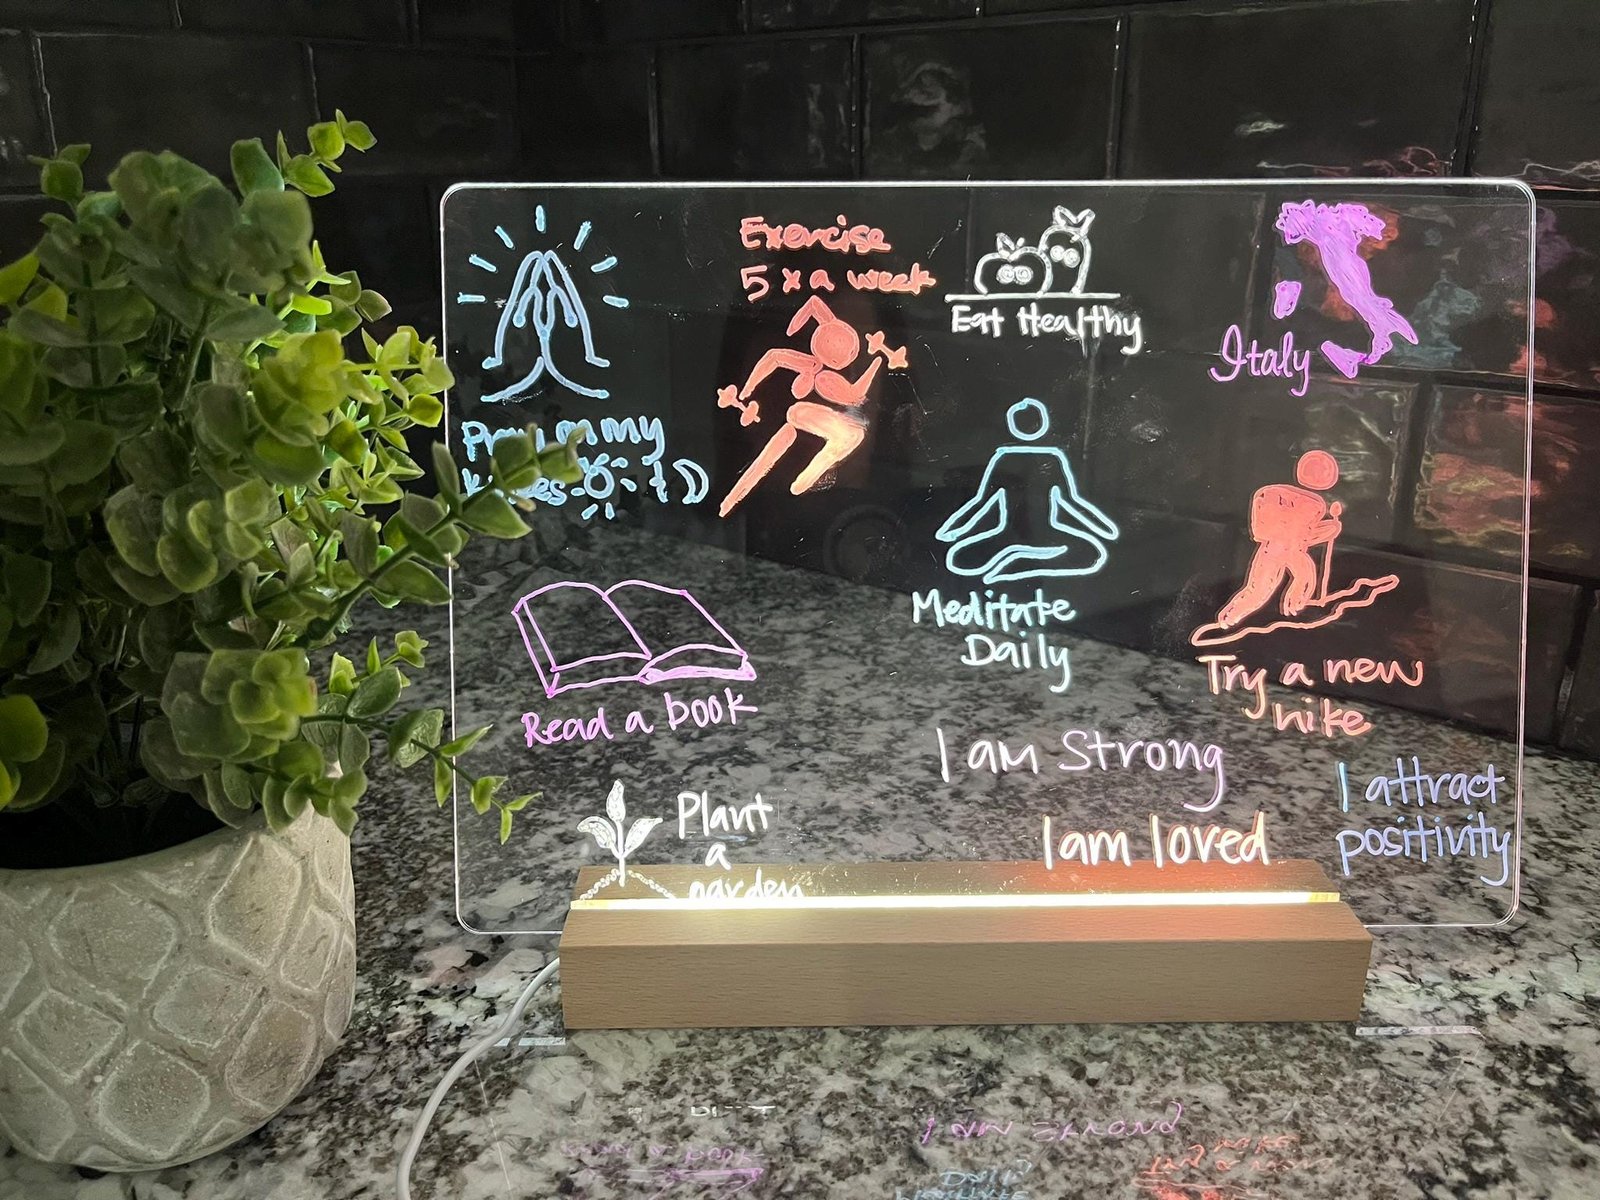 Exercise
5 x a week
Eat Healthy
Italy
my
Meditate
Daily
Read a book
Try a new
hike
I am Strong
I am loved
I attract
positivity
Plant
a
garden